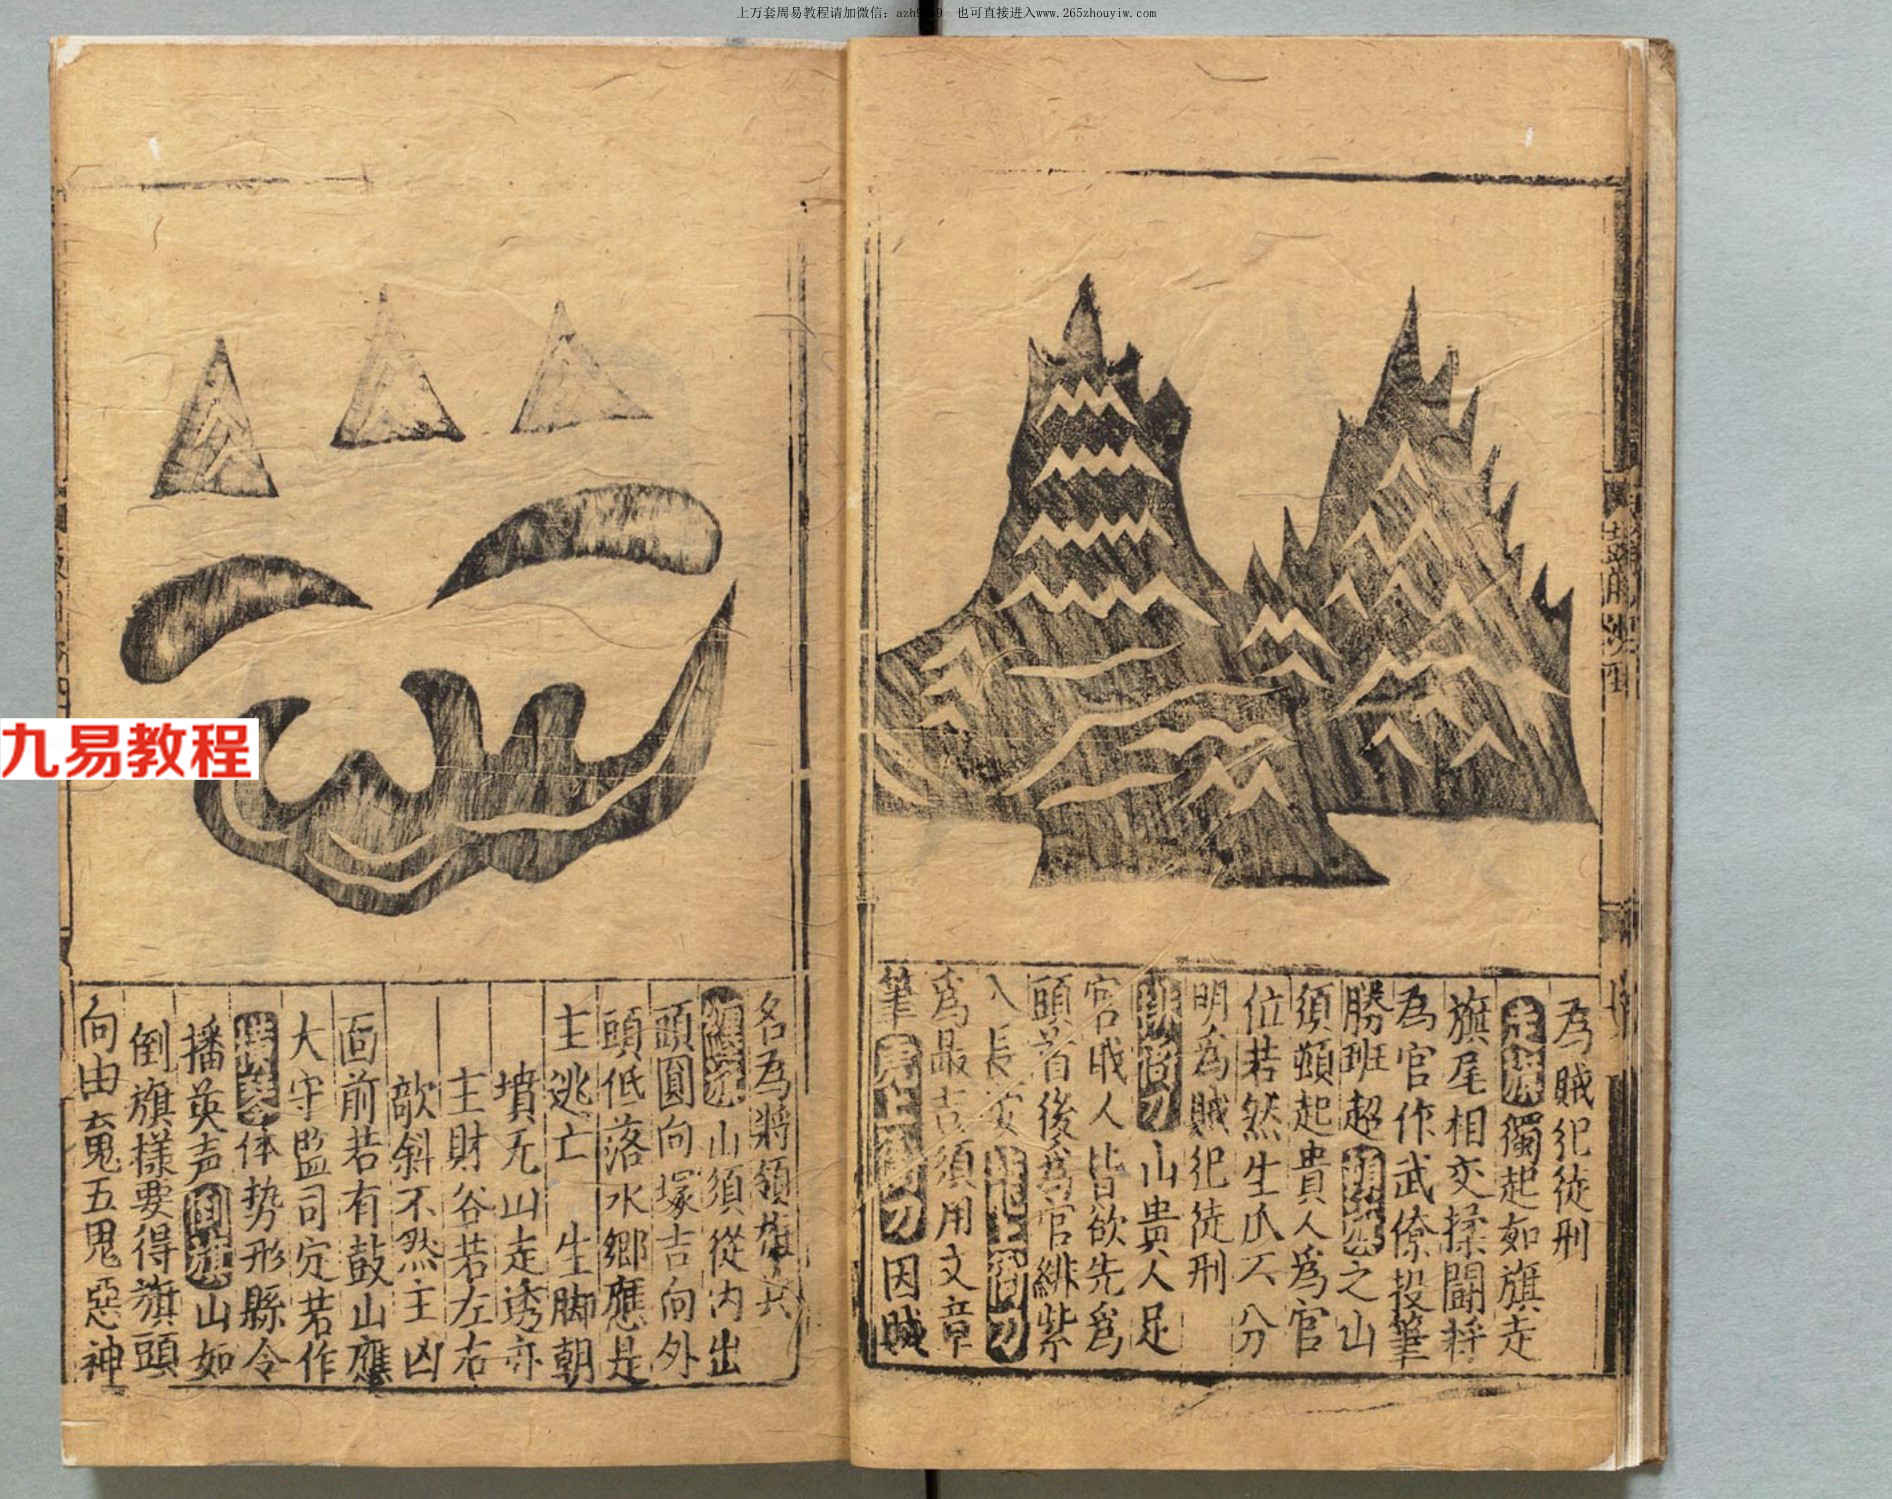 上万套周易教程请加微信：azh9　　9　也可直接进入www.265zhouyiw.com
九易教程
為賊犯徒刑
獨起如旗走
旗尾相交揉鬪將
為官作武僚投筆
勝班超　之山
須顛起貴人爲官
位若然生爪不分
明爲賊犯徒刑
山貴人足
官戒人皆欲先爲
頭首後爲官緋紫
入長安
爲最吉須用文章
筆　因賊
名為將領旗兵
山須從內出
頭圓向塚吉向外
頭低落水鄉應是
主逃亡　生脚朝
墳无山走透亦
主財谷若左右
欹斜不然主凶
面前若有鼓山應
大守監司定若作
体势形縣令
播英声　山如
倒旗樣要得旗頭
向由　鬼五鬼惡神